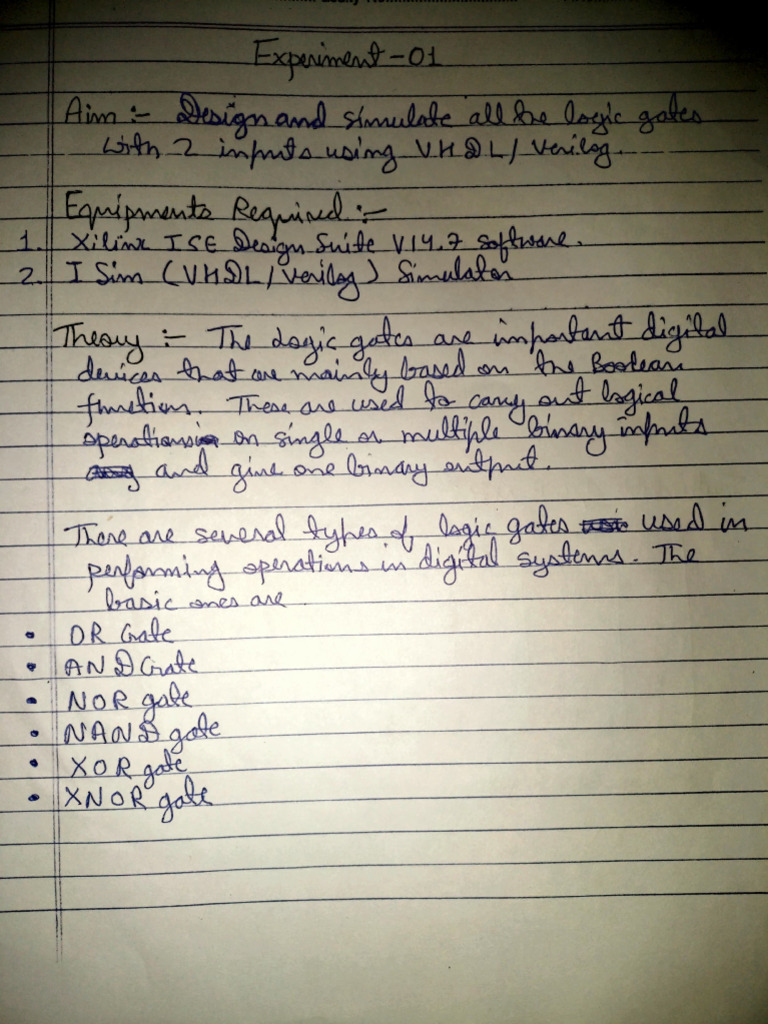 Experiment-01
Aim :- Design and simulate all the logic gates
with 2 inputs using VHDL/Verilog.
Equipments Required :-
1. Xilinx ISE Design Suite V14.7 software.
2. I Sim (VHDL/Verilog) Simulator
Theory :- The Logic gates are important digital
devices that are mainly based on the Boolean
function. These are used to carry out logical
operations on single or multiple binary inputs
and give one binary output.
There are several types of logic gates used in
performing operations in digital systems. The
basic ones are
• OR Gate
• AND Gate
• NOR gate
• NAND gate
• XOR gate
• XNOR gate